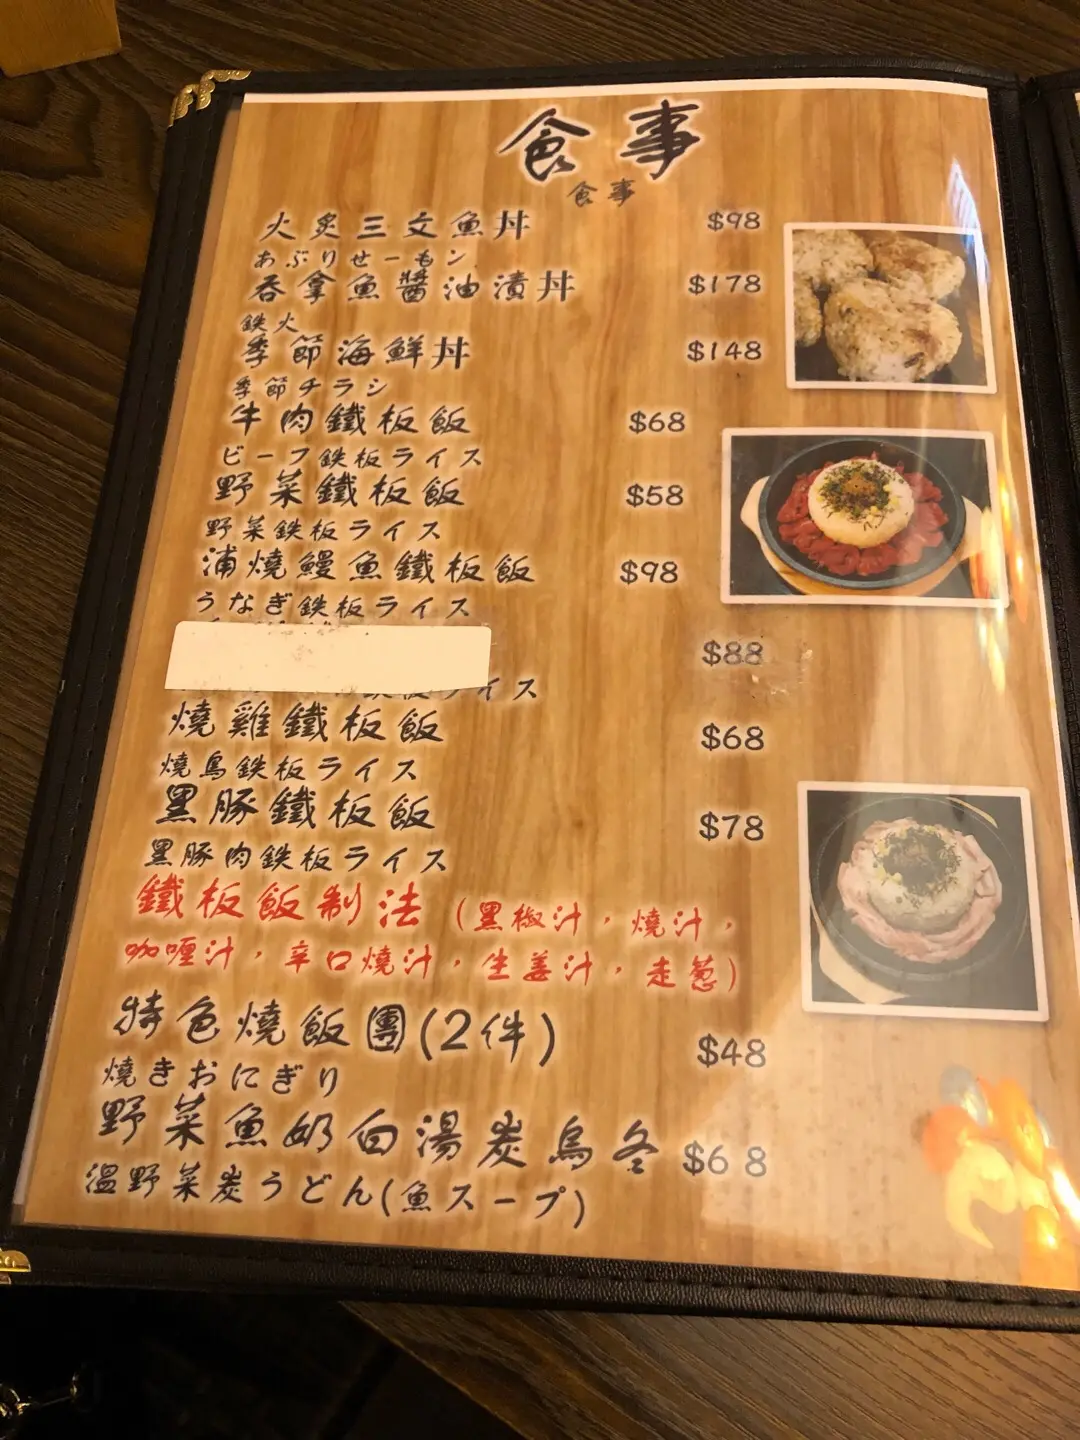 食事
食事
火炙三文魚丼 $98
あぶりせーもン
吞拿魚醬油漬丼 $178
鉄火
季節海鮮丼 $148
季節チラシ
牛肉鐵板飯 $68
ビーフ鉄板ライス
野菜鐵板飯 $58
野菜鉄板ライス
浦燒鰻魚鐵板飯 $98
うなぎ鉄板ライス
$88
鉄板ライス
燒雞鐵板飯 $68
燒鳥鉄板ライス
黑豚鐵板飯 $78
黑豚肉鉄板ライス
鐵板飯制法（黑椒汁，燒汁，
咖喱汁，辛口燒汁，生姜汁，走葱）
特色燒飯團(2件) $48
燒きおにぎり
野菜魚奶白湯炭烏冬 $68
温野菜炭うどん(魚スープ)